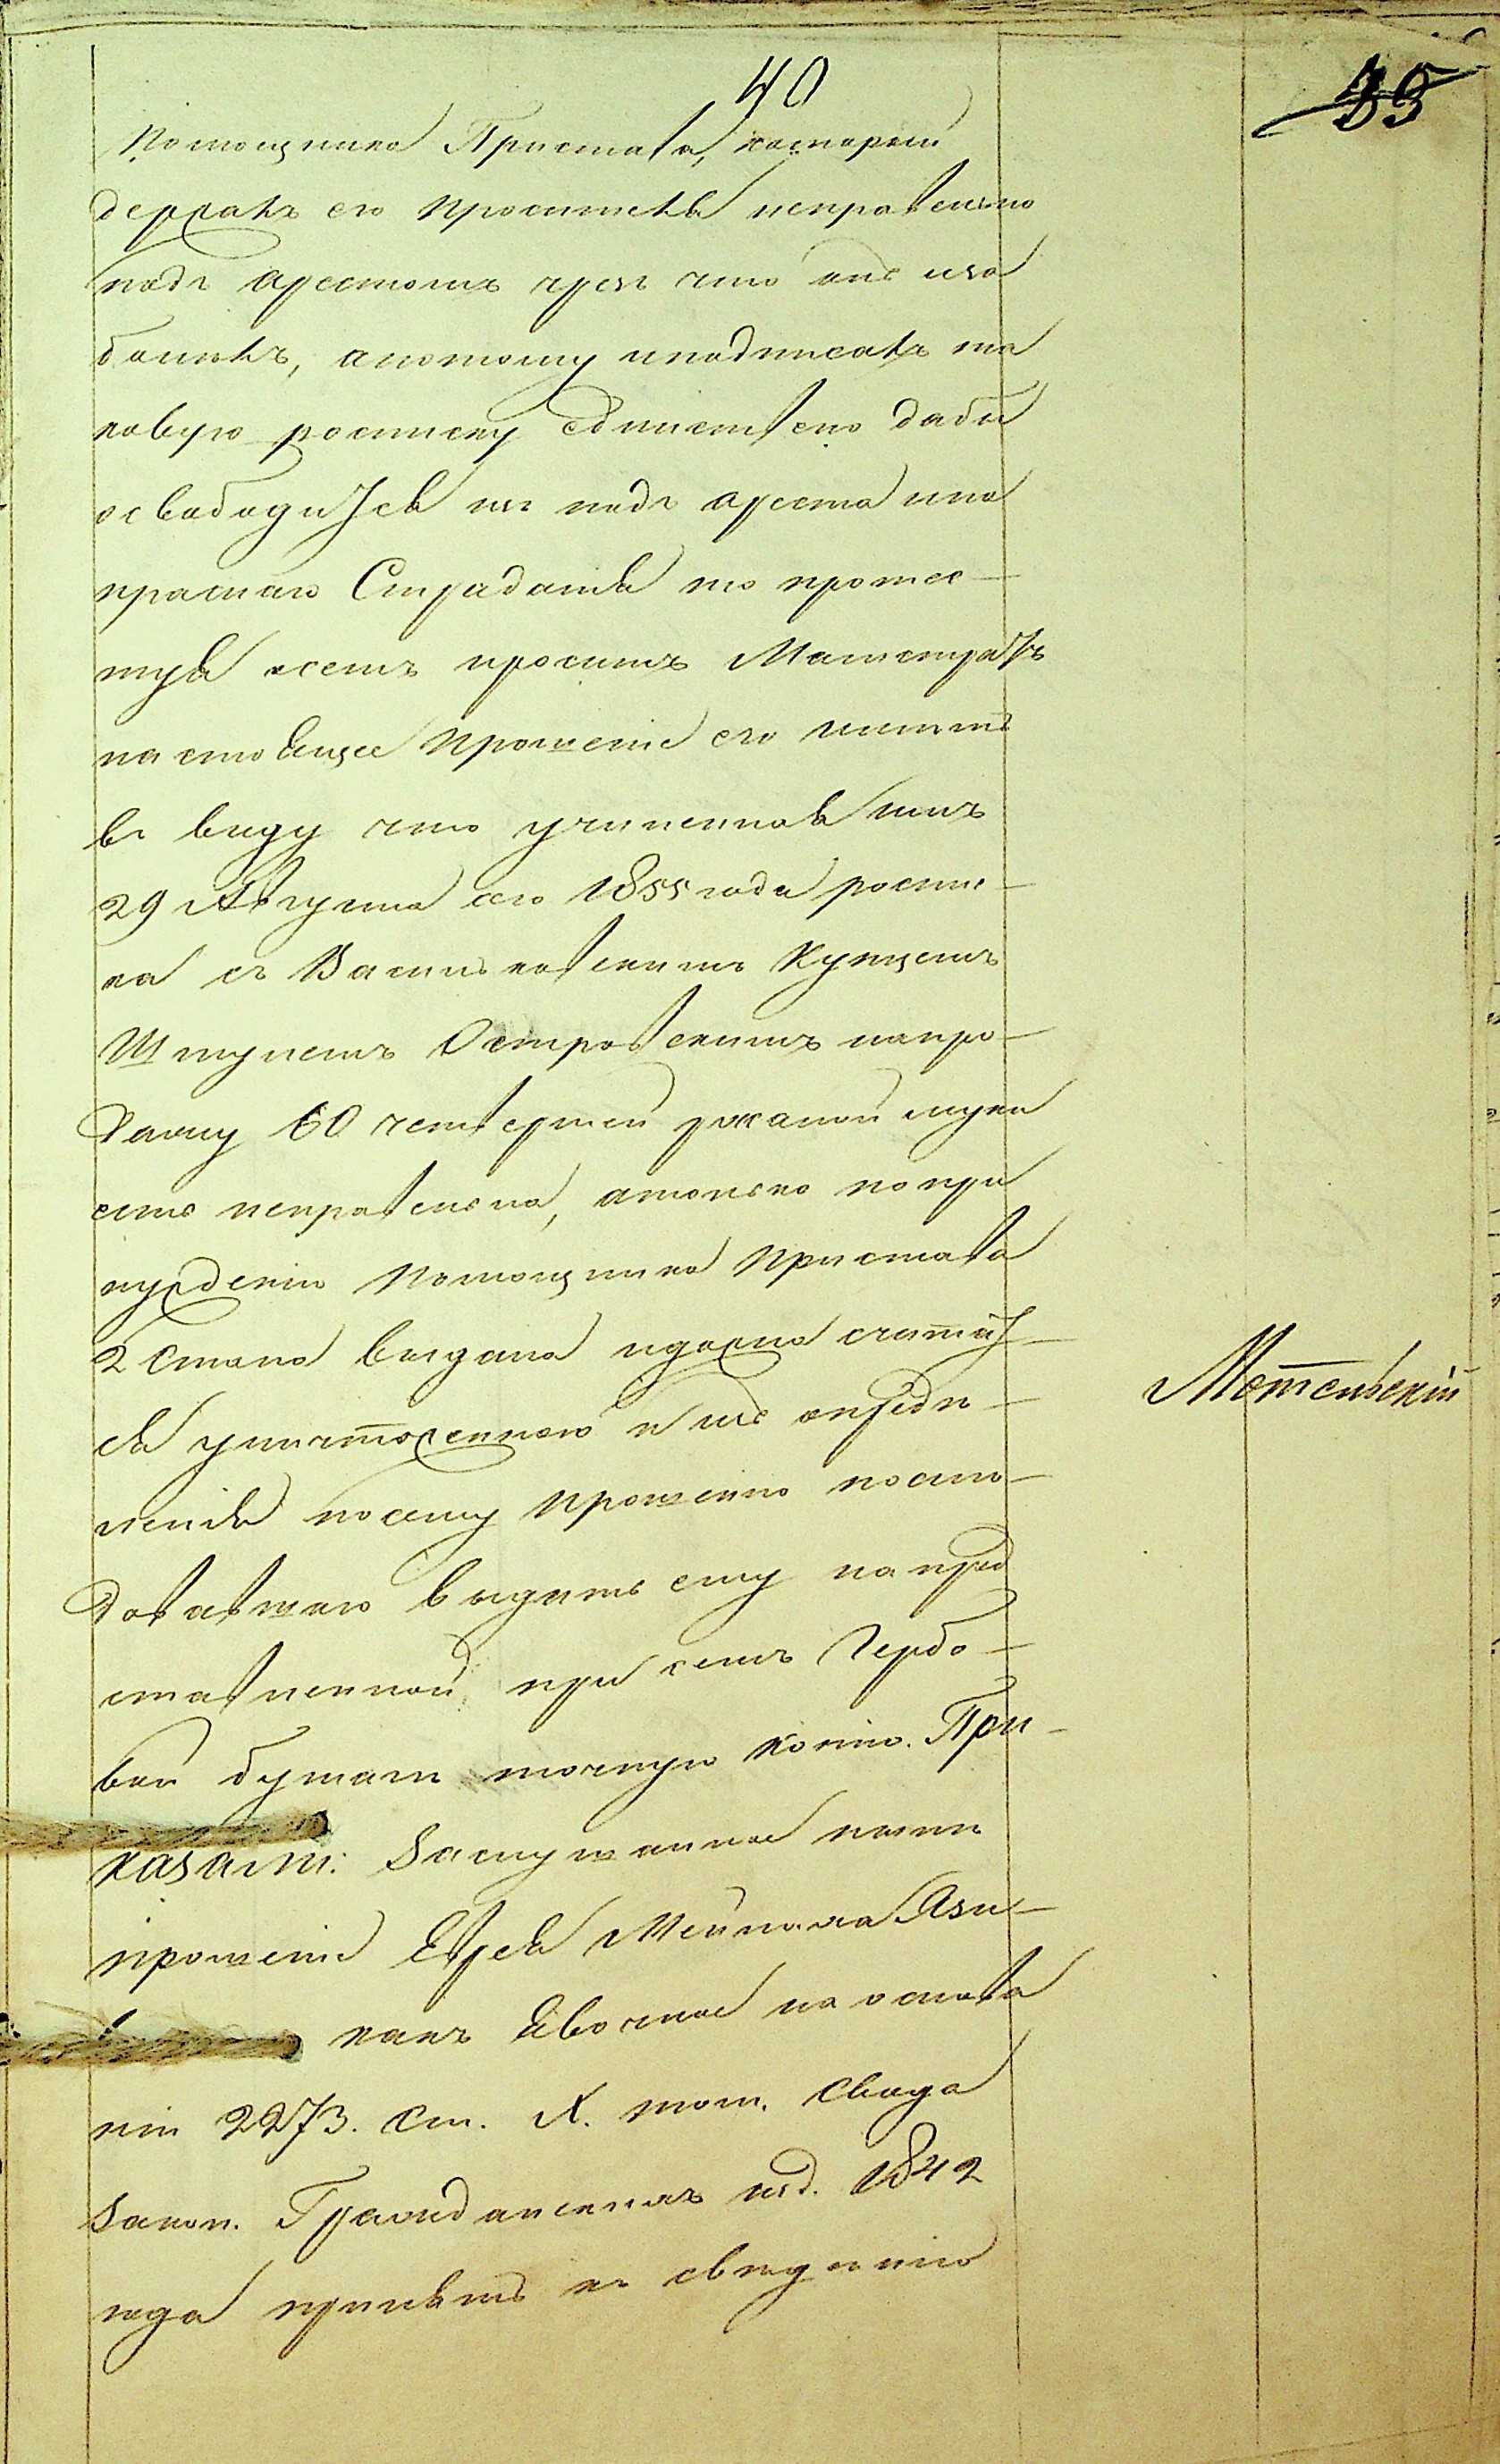 40
35
Помощника Пристава, который
держалъ его просителя неправельно
подъ арестомъ чрезъ что онъ иза
болелъ, апотому иподписалъ та
ковую росписку единственно дабы
освабодитьса изъ подъ ареста ина
праснаго Страдатъ то протес-
туя осемъ проситъ Магистратъ
настоящее прошеніе его иметь
въ виду что учиненная имъ
29 Августа сего 1855 года роспис-
ка съ Васильковскимъ Купцемъ
Шмулемъ Островскимъ напро-
дажу 60 четвертей ржаной муки
есть неправельна, атолько попри
нужденію Помощника Пристава
2 Стана выдана идолжна считать-
ся уничтоженною и по опреде-
ленія посему прошенію посло-
довавшаго выдать ему на пред
ставленной при семъ Гербо-
вой бумаги точную копію. При-
казали: Заслушанное ныни
прошеніе Еврея Мейлаха Ази-
какъ явочное на основа
ніи 2273. Ст. X. том. Свода
Закон. Гражданскихъ изд. 1842
года принять къ сведенію